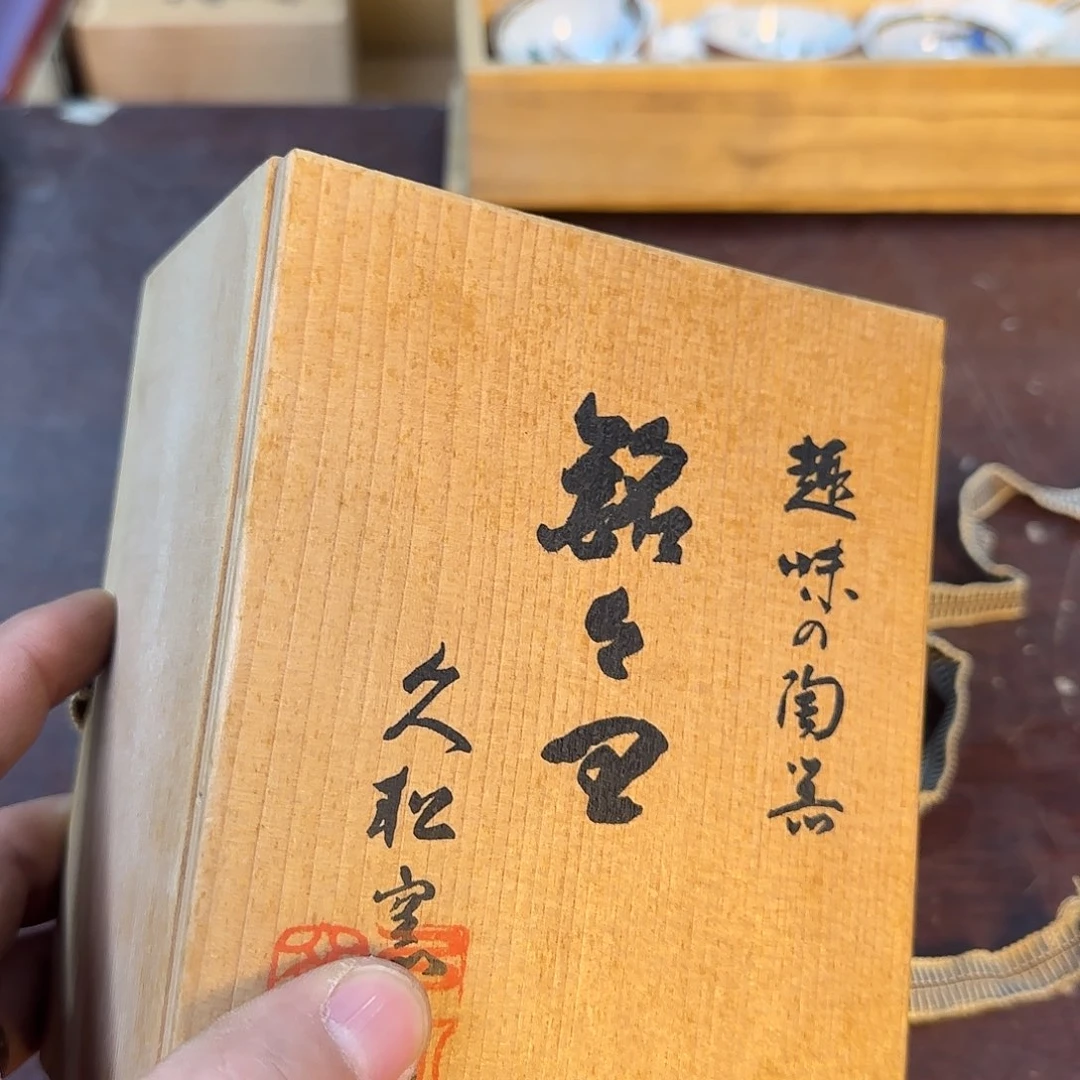 趣味の陶器
銘々皿
久松窯